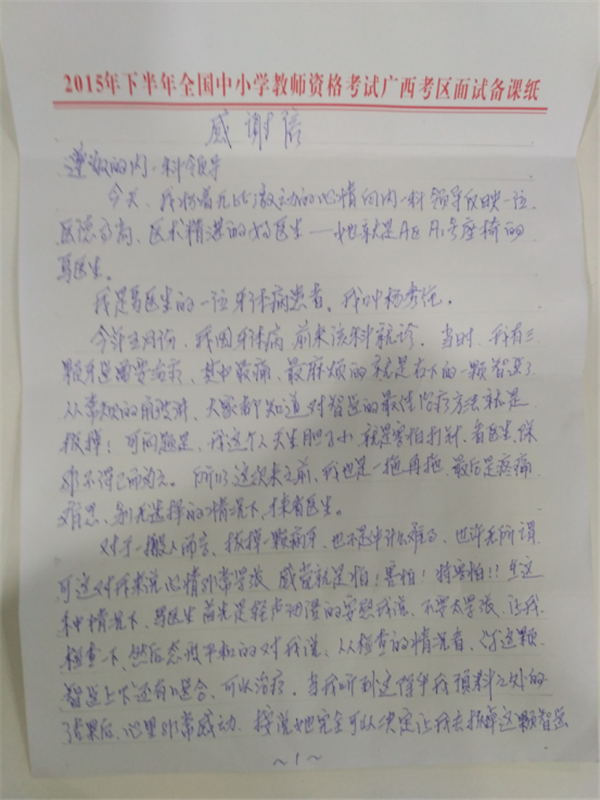 2015年下半年全国中小学教师资格考试广西考区面试备课纸
感谢信
尊敬的内一科领导
今天、我怀着无比激动的心情向内一科领导反映一位
医德高高、医术精湛的好医生——她就是A区A1号座椅的
马医生。
我是马医生的一位牙体病患者、我叫杨秀
今年五月份、我因牙体病前来该科就诊、当时、我有三
颗牙齿需要治疗、其中最痛、最麻烦的就是右下的一颗智齿了
从常规的角度讲、大家都知道对智齿的最佳治疗方法就是
拔掉！可问题是、我这个人天生胆子小就是害怕打针、看医生、
不得已而为之。所以这次来之前、我也是一拖再拖、最后是疼痛
难忍、别无选择的情况下、才来看医生。
对于一般人而言、拔掉一颗病牙、也不是件什么难事、也许无所谓
可这对我来说心情非常紧张 感觉就是怕！害怕！特害怕!! 在这
种情况下、马医生首先是轻声细语的安慰我说、不要太紧张、让我
检查一下、然后态度平和的对我说、从检查的情况看、你这颗
智齿上下还有咬合、可以治疗、当我听到这得乎我预料之外的
结果后、心里非常感动、按说她完全可以决定让我去拔掉这颗智齿
～1～